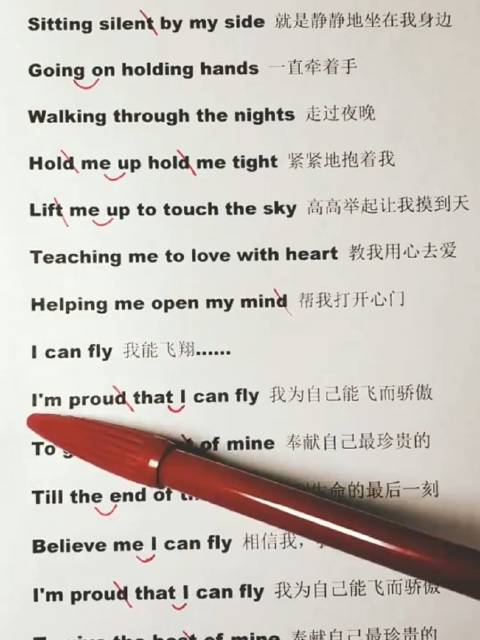 Sitting silent by my side 就是静静地坐在我身边
Going on holding hands 一直牵着手
Walking through the nights 走过夜晚
Hold me up hold me tight 紧紧地抱着我
Lift me up to touch the sky 高高举起让我摸到天
Teaching me to love with heart 教我用心去爱
Helping me open my mind 帮我打开心门
I can fly 我能飞翔......
I'm proud that I can fly 我为自己能飞而骄傲
To of mine 奉献自己最珍贵的
Till the end of 生命的最后一刻
Believe me I can fly 相信我，
I'm proud that I can fly 我为自己能飞而骄傲
To give the best of mine 奉献自己最珍贵的